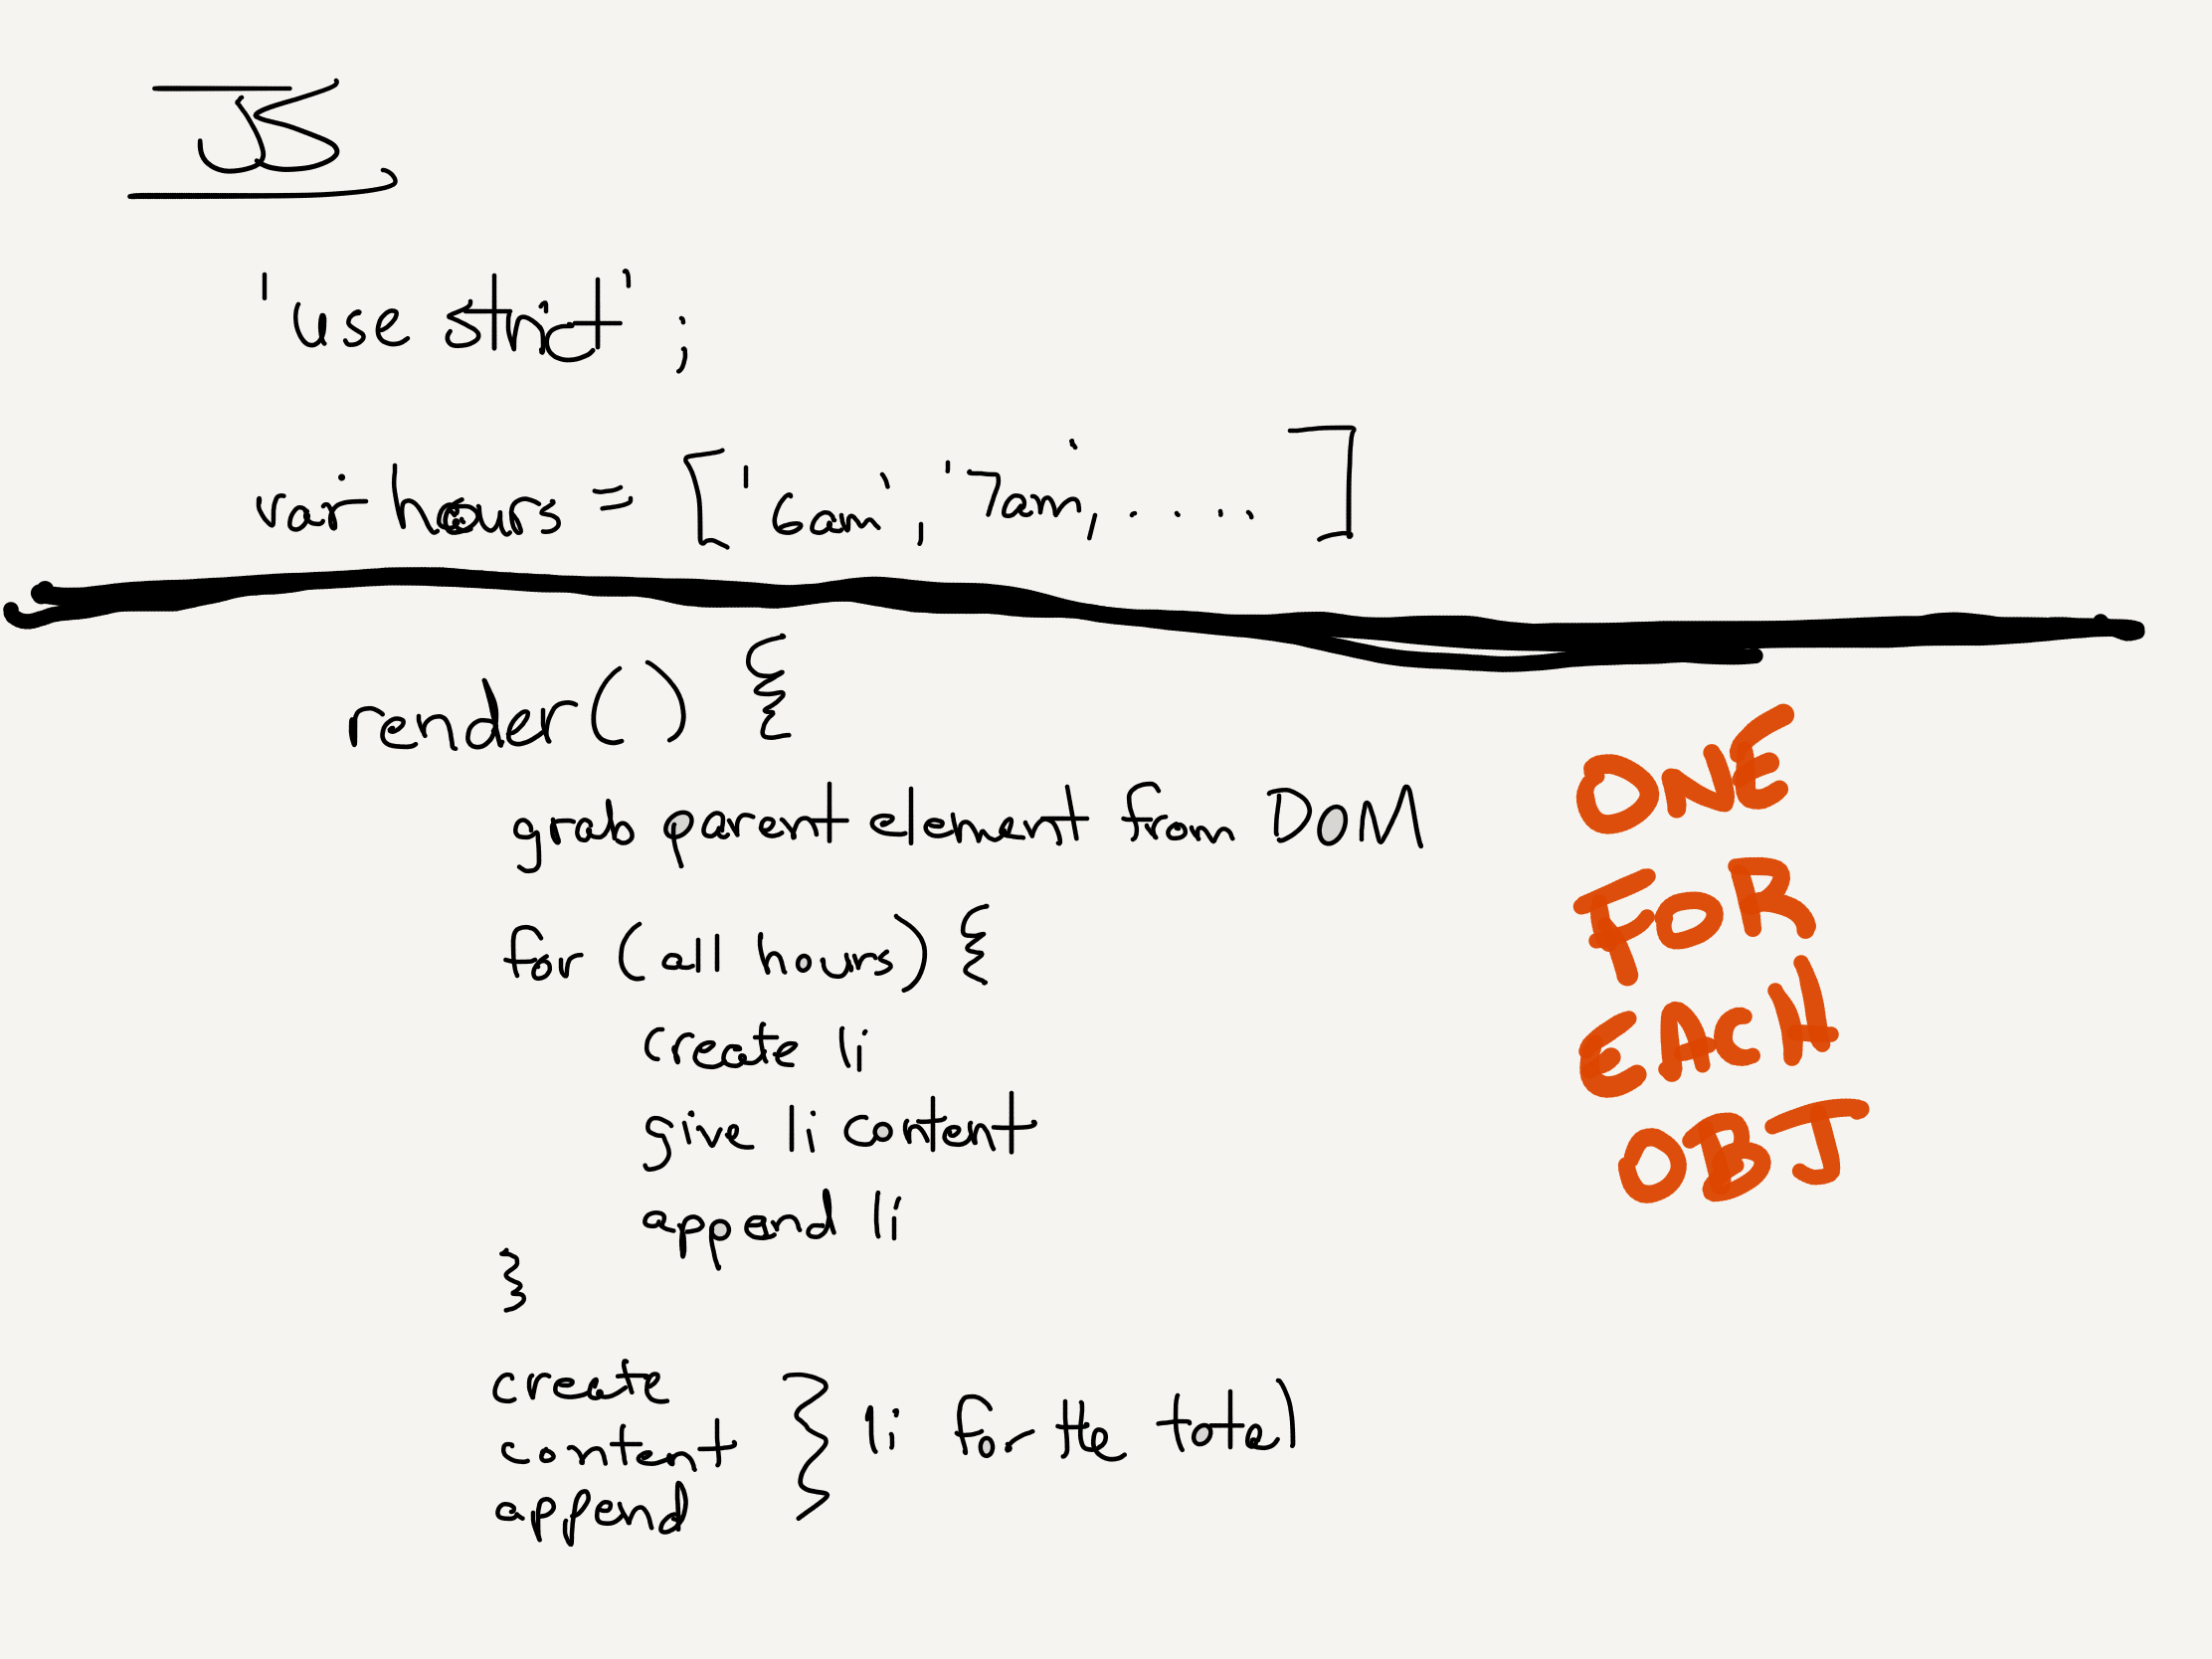 JS
'use strict';
var hours = ['6am', '7am', ..... ]
render() {
grab parent element from DOM
for (all hours) {
create li
give li content
append li
}
create
content } li for the total
append
ONE
FOR
EACH
OBJ